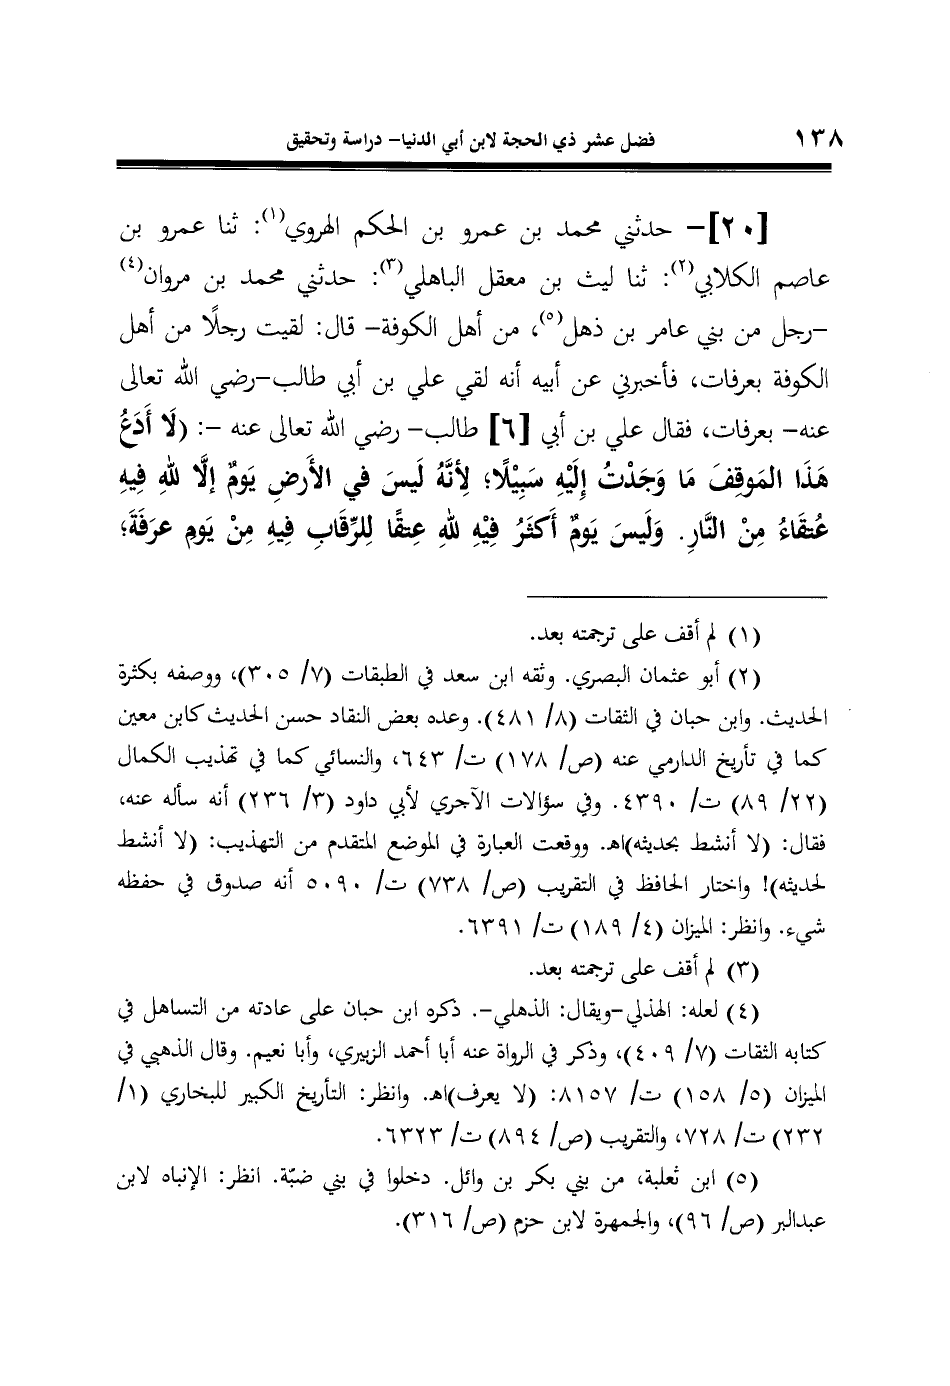 ١٣٨ فضل عشر ذي الحجة لابن أبي الدنيا- دراسة وتحقيق
[٢٠]- حدثني محمد بن عمرو بن الحكم الهروي(١): ثنا عمرو بن
عاصم الكلابي(٢): ثنا ليث بن معقل الباهلي(٣): حدثني محمد بن مروان(٤)
-رجل من بني عامر بن ذهل(٥)، من أهل الكوفة- قال: لقيت رجلًا من أهل
الكوفة بعرفات، فأخبرني عن أبيه أنه لقي علي بن أبي طالب-رضي الله تعالى
عنه- بعرفات، فقال علي بن أبي [٦] طالب- رضي الله تعالى عنه -: (لَا أَدَعُ
هَذَا المَوقِفَ مَا وَجَدْتُ إِلَيْهِ سَبِيْلًا؛ لِأنَّهُ لَيسَ في الأَرضِ يَومٌ إلَّا للهِ فِيهِ
عُتَقَاءُ مِنْ النَّارِ. وَلَيسَ يَومٌ أَكثَرُ فِيْهِ للهِ عِتقًا لِلرِّقَابِ فِيهِ مِنْ يَومِ عرَفَةَ؛
(١) لم أقف على ترجمته بعد.
(٢) أبو عثمان البصري. وثقه ابن سعد في الطبقات (٧/ ٣٠٥)، ووصفه بكثرة
الحديث. وابن حبان في الثقات (٨/ ٤٨١). وعده بعض النقاد حسن الحديث كابن معين
كما في تأريخ الدارمي عنه (ص/ ١٧٨) ت/ ٦٤٣، والنسائي كما في تهذيب الكمال
(٢٢/ ٨٩) ت/ ٤٣٩٠. وفي سؤالات الآجري لأبي داود (٣/ ٢٣٦) أنه سأله عنه،
فقال: (لا أنشط بحديثه)اهـ. ووقعت العبارة في الموضع المتقدم من التهذيب: (لا أنشط
لحديثه)! واختار الحافظ في التقريب (ص/ ٧٣٨) ت/ ٥٠٩٠ أنه صدوق في حفظه
شيء. وانظر: الميزان (٤/ ١٨٩) ت/ ٦٣٩١.
(٣) لم أقف على ترجمته بعد.
(٤) لعله: الهذلي-ويقال: الذهلي-. ذكره ابن حبان على عادته من التساهل في
كتابه الثقات (٧/ ٤٠٩)، وذكر في الرواة عنه أبا أحمد الزبيري، وأبا نعيم. وقال الذهبي في
الميزان (٥/ ١٥٨) ت/ ٨١٥٧: (لا يعرف)اهـ. وانظر: التأريخ الكبير للبخاري (١/
٢٣٢) ت/ ٧٢٨، والتقريب (ص/ ٨٩٤) ت/ ٦٣٢٣.
(٥) ابن ثعلبة، من بني بكر بن وائل. دخلوا في بني ضبّة. انظر: الإنباه لابن
عبدالبر (ص/ ٩٦)، والجمهرة لابن حزم (ص/ ٣١٦).